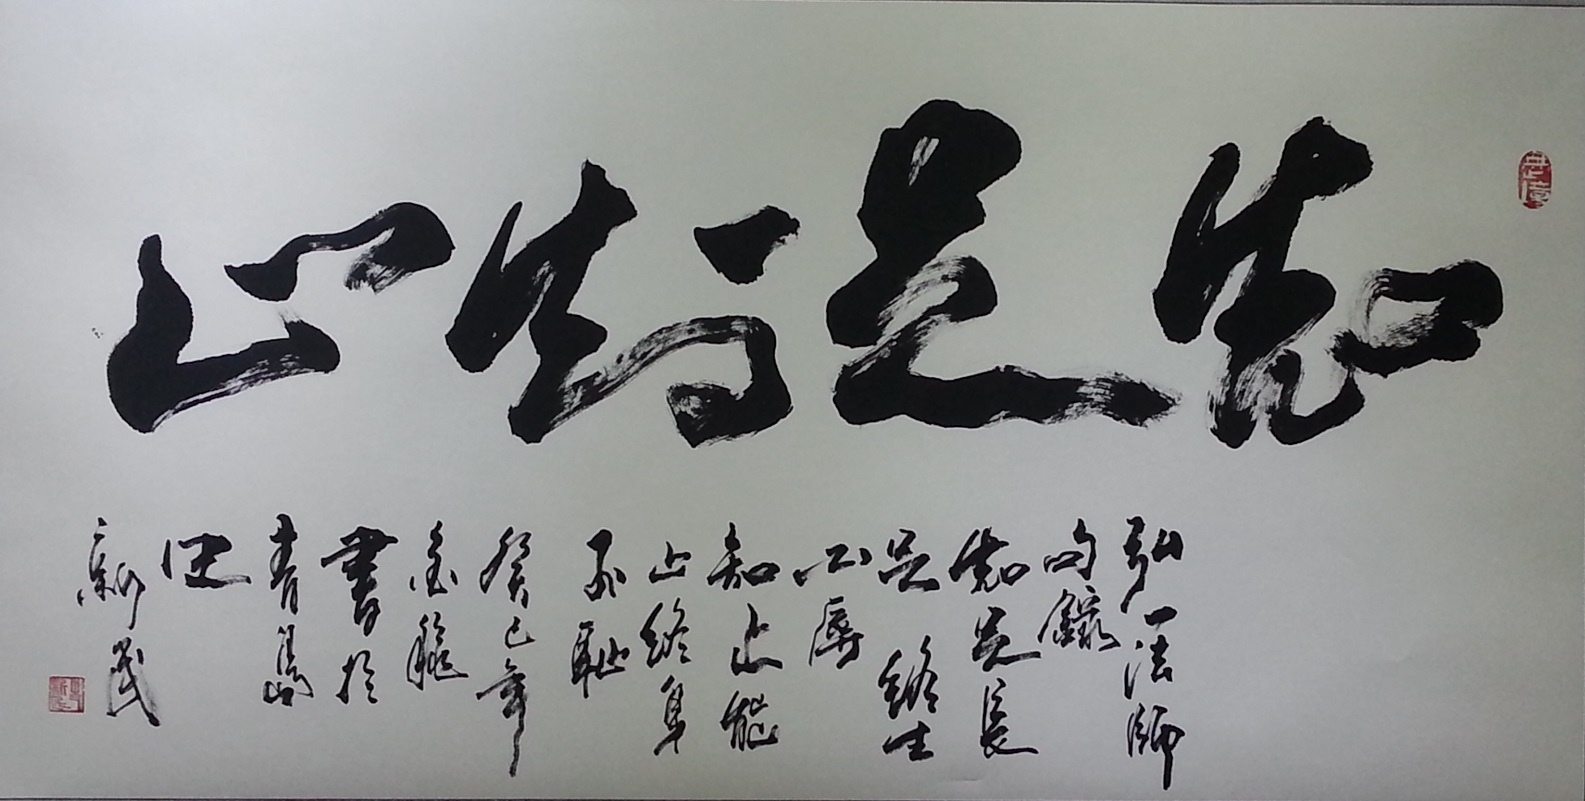 知足知止
弘一法師
句錄
知足長
足終生
不辱
知止能
止終身
不耻
癸巳年
金穐
書於
青島
史
新民